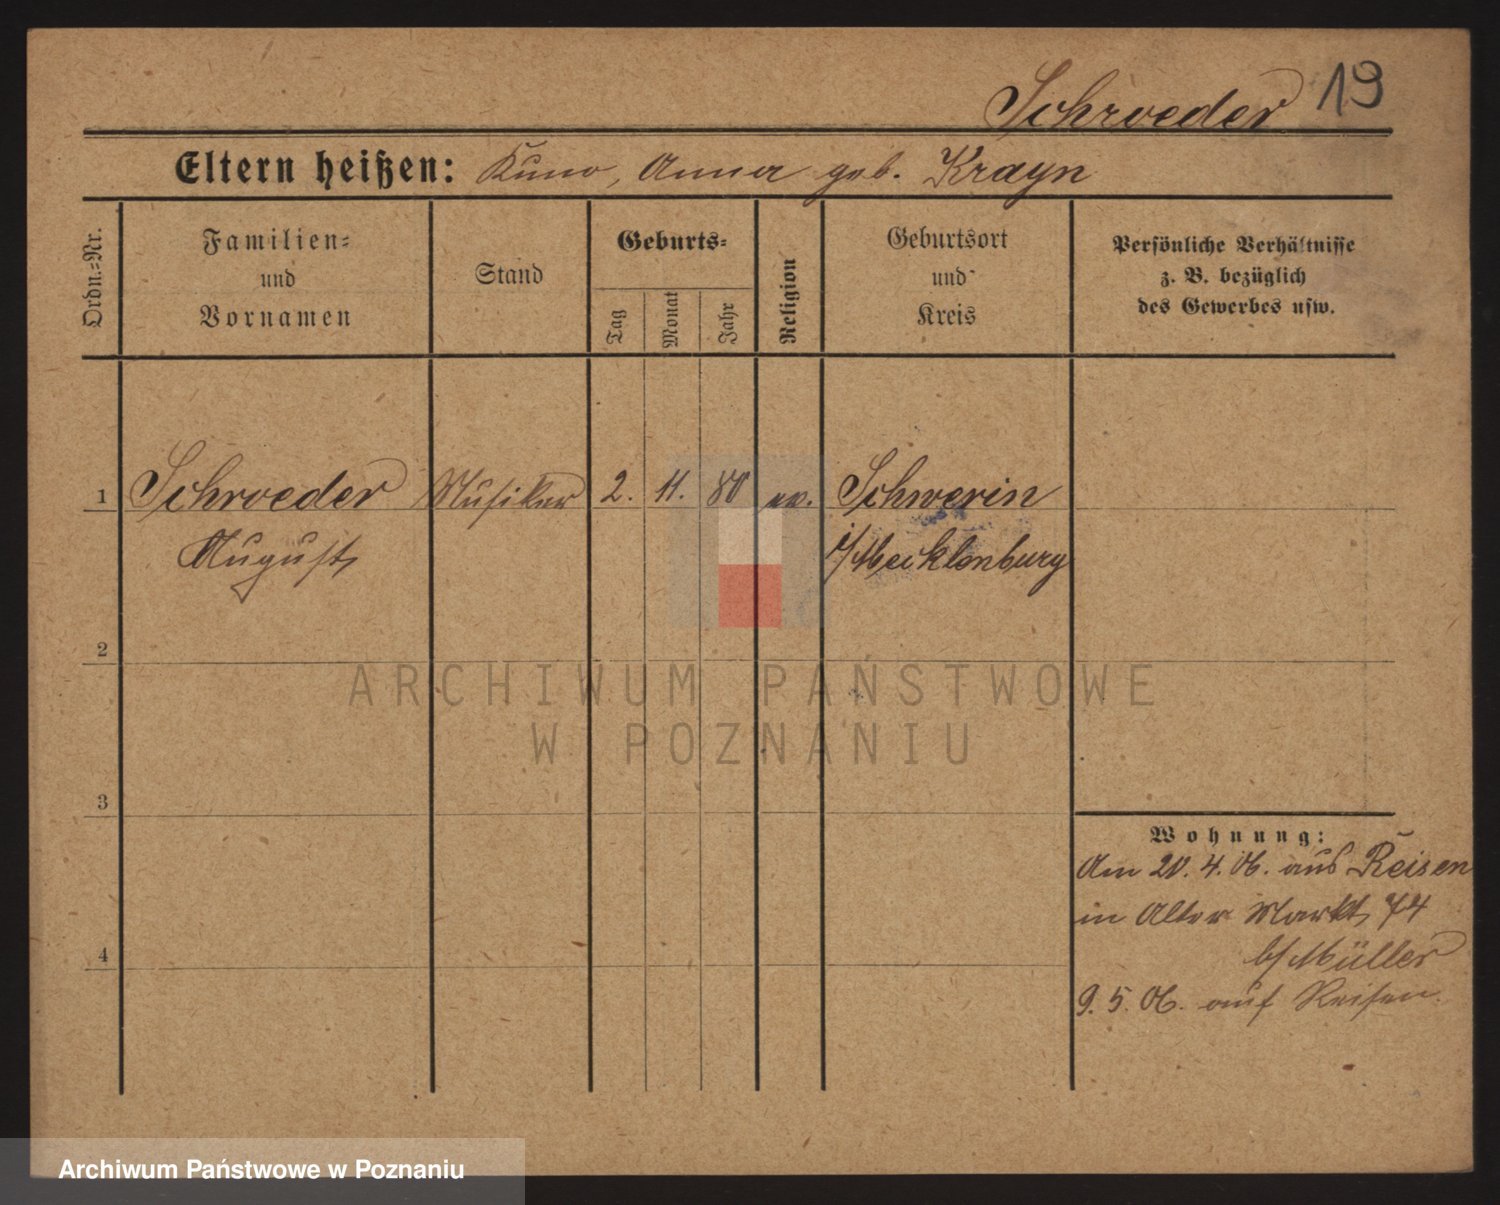 Schroeder 19
Eltern heißen: Kuno, Anna geb. Krayn
Ordn.-Nr.
Familien-
und
Vornamen
Stand
Geburts-
Tag
Monat
Jahr
Religion
Geburtsort
und
Kreis
Persönliche Verhältnisse
z. B. bezüglich
des Gewerbes usw.
1 Schroeder Musiker 2. 11. 80 ev. Schwerin
August i/Mecklenburg
2
ARCHIWUM PAŃSTWOWE
W POZNANIU
3
Wohnung:
Am 20. 4. 06. aus Reisen
in Alter Markt 74
b/Müller
4
9. 5. 06. auf Reisen.
Archiwum Państwowe w Poznaniu